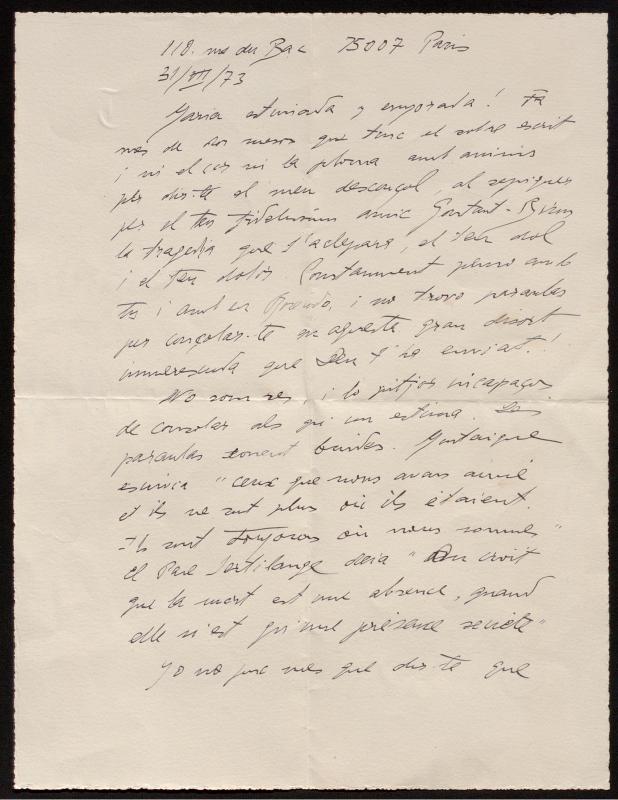 118. rue du Bac 75007 Paris
31/VII/73
Maria estimada y enyorada! Fa
mes de dos mesos que tinc el sobre escrit
i ni el cos ni la ploma amb ànims
per dir-te el meu desconçol, al sapiguer
per el teu fidelíssim amic
la tragedia que t'aclapara, el teu dol
i el teu dolor. Constantment penso amb
tu i amb en i no trovo paraules
per conçolar-te en aquesta gran dissort
inmerescuda que Deu t'ha enviat.!
No som res, i lo pitjor incapaços
de consolar als qui un estima. Les
paraules sonent buides. Montaigne
escrivia "Ceux que nous avons aimé
et ils ne sont plus où ils étaient.
Ils sont toujours où nous sommes"
el Pare Sertilange deia "On croit
que la mort est une absence, quand
elle n'est qu'une présence secrète"
Jo no puc mes que dir-te que